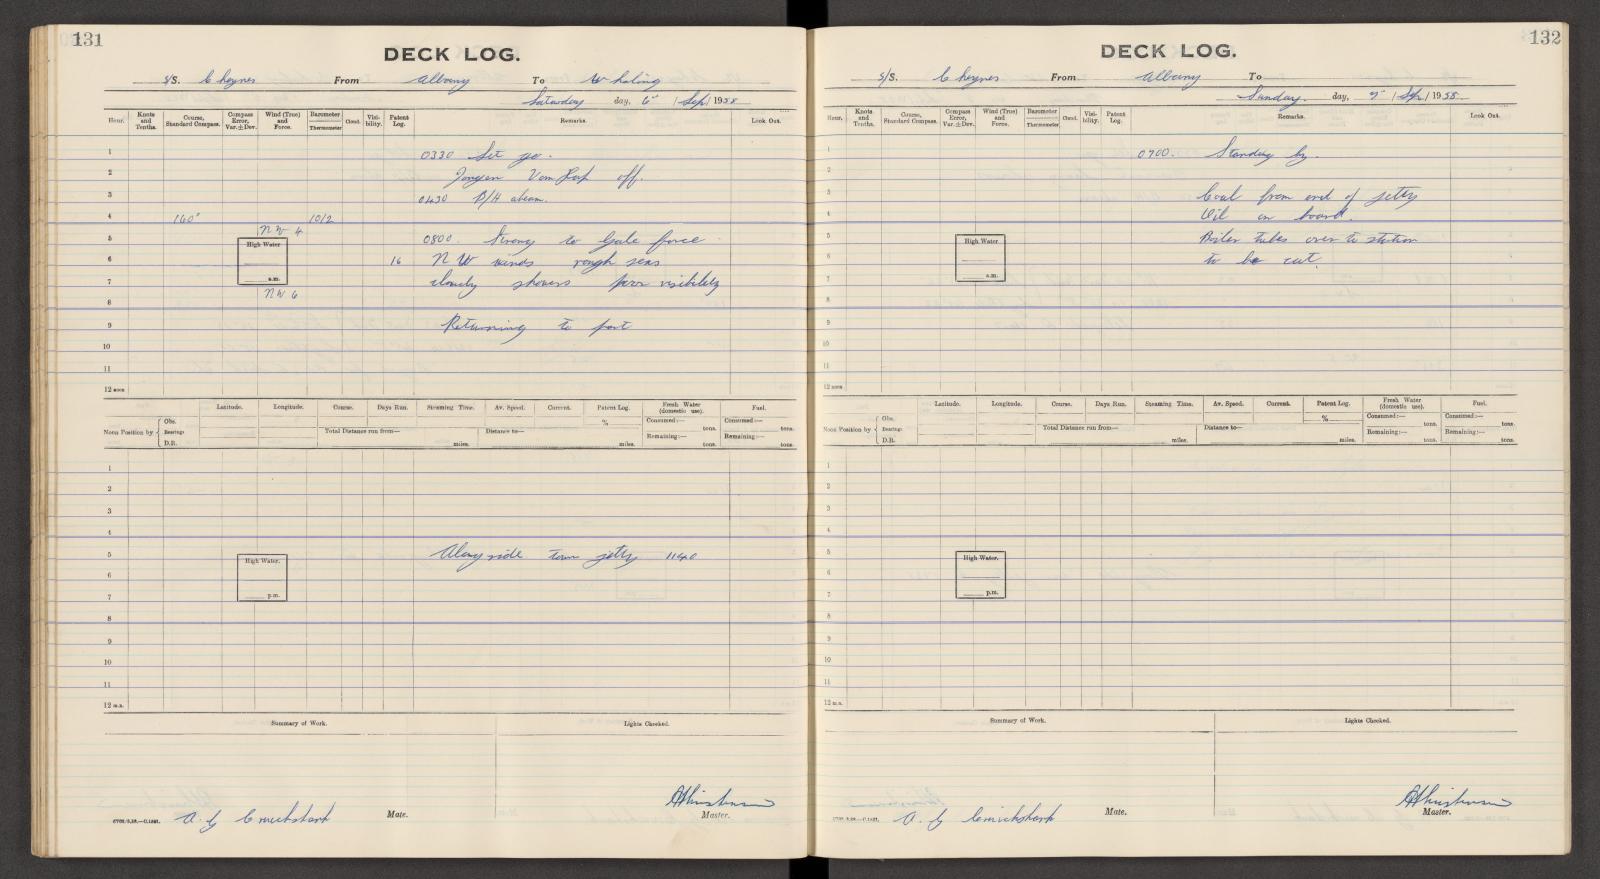 131
DECK LOG.
S/S. Cheynes From Albany To Whaling
Saturday day, 6" / Sep / 1958
Hour. Knots and Tenths. Course, Standard Compass. Compass Error, Var. ± Dev. Wind (True) and Force. Barometer Thermometer Cloud. Visibility. Patent Log. Remarks. Look Out.
1 0330 Set go.
2 off.
3 0430 B/H abeam.
4 160° 1012
NW 4
5 High Water 0800. Strong to Gale force
6 16 NW winds rough seas
a.m.
7 cloudy showers poor visibility
8 NW 6
9 Returning to port
10
11
12 noon
Latitude. Longitude. Course. Days Run. Steaming Time. Av. Speed. Current. Patent Log. Fresh Water (domestic use). Fuel.
Noon Position by Obs. % Consumed:— tons. Consumed:— tons.
Bearings Total Distance run from— miles. Distance to— miles.
D.R. Remaining:— tons. Remaining:— tons.
1
2
3
4
5 High Water. Alongside town jetty 1140
6
7 p.m.
8
9
10
11
12 m.n.
Summary of Work. Lights Checked.
Mate. Master.
132
DECK LOG.
S/S. Cheynes From Albany To
Sunday. day, 7" / Sep / 1958
Hour. Knots and Tenths. Course, Standard Compass. Compass Error, Var. ± Dev. Wind (True) and Force. Barometer Thermometer Cloud. Visibility. Patent Log. Remarks. Look Out.
1 0700. Standing by.
2
3 Coal from end of jetty
4 Oil on board.
5 High Water Boiler tubes over to station
6 to be cut.
7 a.m.
8
9
10
11
12 noon
Latitude. Longitude. Course. Days Run. Steaming Time. Av. Speed. Current. Patent Log. Fresh Water (domestic use). Fuel.
Noon Position by Obs. % Consumed:— tons. Consumed:— tons.
Bearings Total Distance run from— miles. Distance to— miles.
D.R. Remaining:— tons. Remaining:— tons.
1
2
3
4
5 High Water.
6
7 p.m.
8
9
10
11
12 m.n.
Summary of Work. Lights Checked.
Mate. Master.